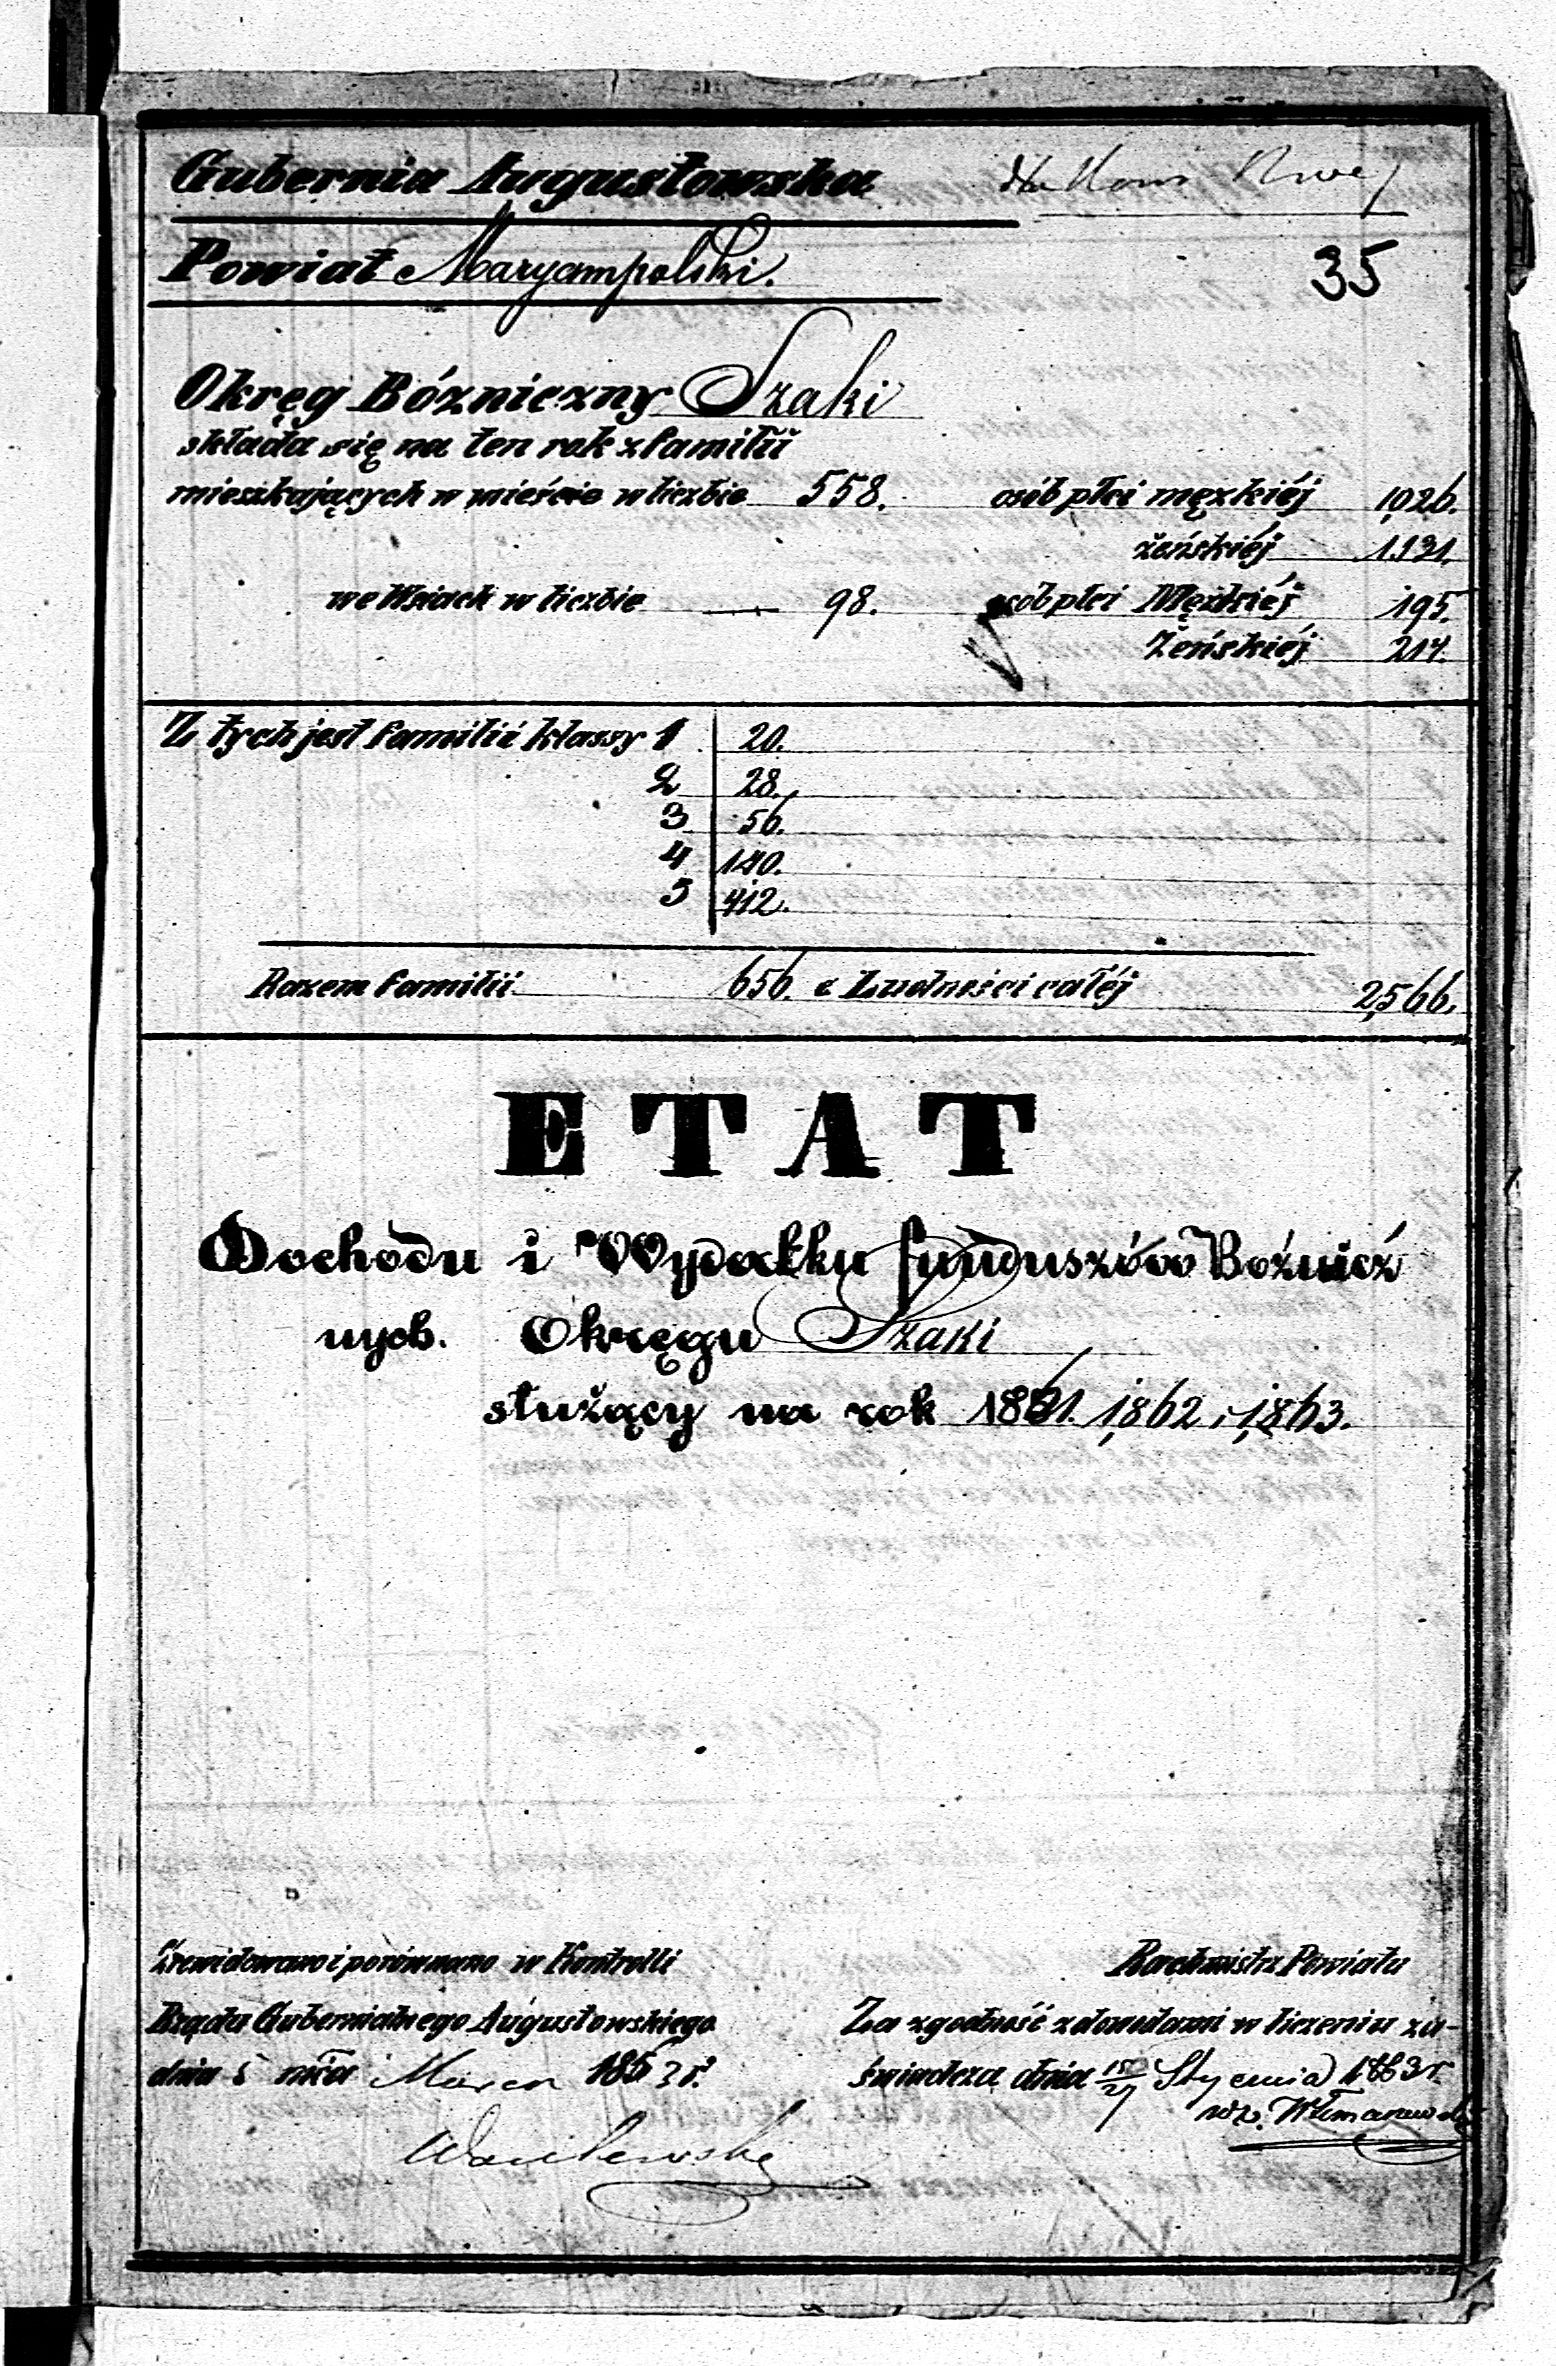 Gubernia Augustowska
Powiat Maryampolski.
35
Okręg Bóżniczny Szaki
składa się na ten rok z familii
mieszkających w mieście w liczbie 558. osób płci męzkiéj 1,026.
żeńskiéj 1.131.
we Wsiach w liczbie 98. osób płci Męzkiéj 195.
Żeńskiéj 214.
Z tych jest familii klassy 1 20.
2 28.
3 56.
4 140.
5 412.
Razem familii 656. a Ludności całéj 2,566.
ETAT
Dochodu i Wydatku funduszów Boźnicz
nych. Okręgu Szaki
służący na rok 1861. 1,862 i 1,863.
Zrewidowano i porównano w Kontrolli
Rządu Gubernialnego Augustowskiego
dnia 5 mca Marca 1863 r.
Rachmistrz Powiatu
Za zgodność z dowodami w liczeniu za-
świadcza dnia 15/27 Stycznia 1863 r.